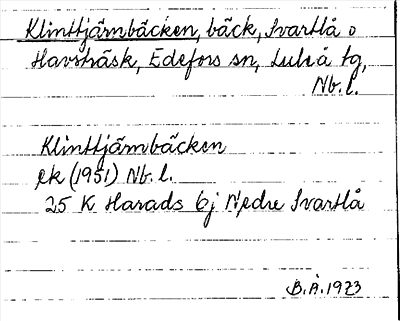 Klinttjärnbäcken, bäck, Svartlå o
Havsträsk, Edefors sn, Luleå tg,
Nb. l.
Klinttjärnbäcken
ek (1951) Nb. l.
25 K Harads 6j Nedre Svartlå
B.Å. 1973